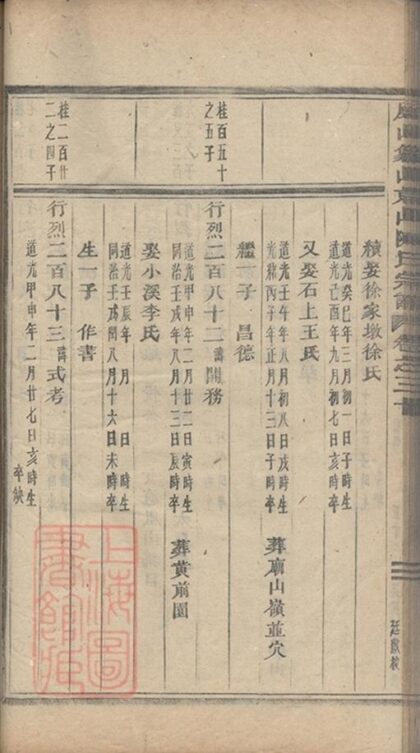 陳氏宗譜 卷之三十
續娶徐家墩徐氏
道光癸巳年三月初一日子時生
道光己酉年九月初七日亥時卒
又娶石上王氏
道光壬午年八月初八日戌時生
光緒丙子年正月十三日子時卒
葬廟山嶺並穴
繼一子 昌德
桂百五十
之五子
行烈二百八十二諱開務
道光甲申年二月廿二日寅時生
同治壬戌年八月十三日辰時卒
葬黃前園
娶小溪李氏
道光壬辰年 月 日 時生
同治壬戌閏八月十六日未時卒
生一子 作書
桂二百廿
二之四子
行烈二百八十三諱式考
道光甲申年二月廿七日亥時生
卒缺
上海圖
書館藏